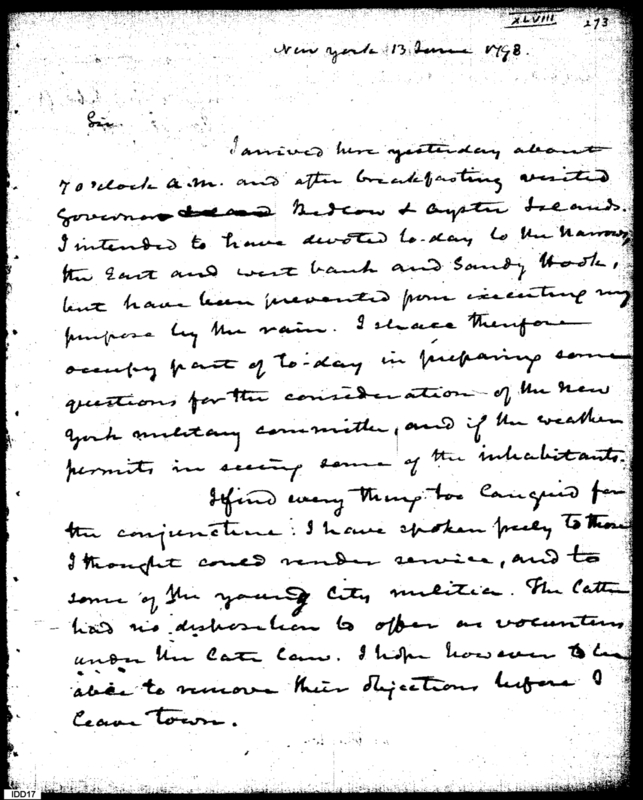 XLVIII 273
New York 13 June 1798.
Sir.
I arrived here yesterday about
7 o'clock A.M. and after breakfasting visited
Governors Island Bedlow & Oyster Islands.
I intended to have devoted to-day to the Narrows,
the East and west bank and Sandy Hook,
but have been prevented from executing my
purpose by the rain. I shall therefore
occupy part of to-day in preparing some
questions for the consideration of the New
York military committee, and if the weather
permits in seeing some of the inhabitants.
I find every thing too languid for
the conjuncture: I have spoken freely to those
I thought could render service, and to
some of the young City militia. The latter
had no disposition to offer as volunteers
under the late law. I hope however to be
able to remove their objections before I
leave town.
IDD17